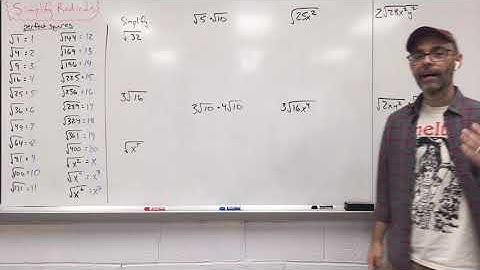 Simplify Radicals
perfect squares
√1 = 1
√4 = 2
√9 = 3
√16 = 4
√25 = 5
√36 = 6
√49 = 7
√64 = 8
√81 = 9
√100 = 10
√121 = 11
√144 = 12
√169 = 13
√196 = 14
√225 = 15
√256 = 16
√289 = 17
√324 = 18
√361 = 19
√400 = 20
√x² = x
√x⁶ = x³
Simplify
√32
3√16
√5 · √10
3√10 · 4√10
√25x²
3√16x⁴